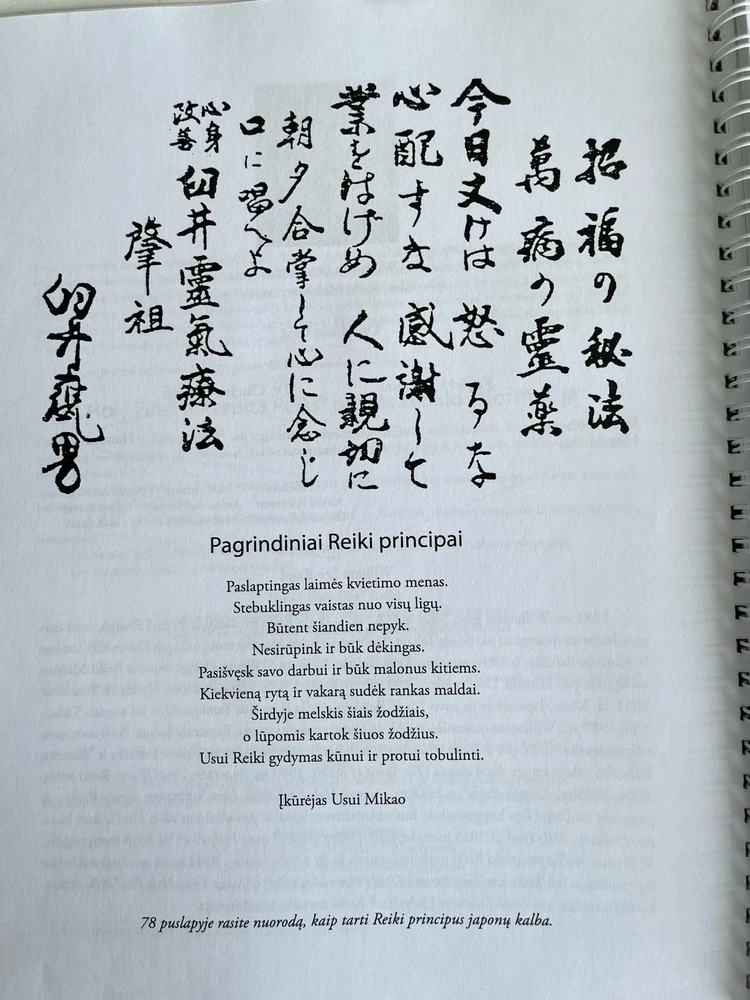 招福の秘法
萬病の靈薬
今日丈けは 怒るな
心配すな 感謝して
業をはげめ 人に親切に
朝夕合掌して心に念じ
口に唱へよ
心身
改善
臼井靈氣療法
肇祖
臼井甕男
Pagrindiniai Reiki principai
Paslaptingas laimės kvietimo menas.
Stebuklingas vaistas nuo visų ligų.
Būtent šiandien nepyk.
Nesirūpink ir būk dėkingas.
Pasišvęsk savo darbui ir būk malonus kitiems.
Kiekvieną rytą ir vakarą sudėk rankas maldai.
Širdyje melskis šiais žodžiais,
o lūpomis kartok šiuos žodžius.
Usui Reiki gydymas kūnui ir protui tobulinti.
Įkūrėjas Usui Mikao
78 puslapyje rasite nuorodą, kaip tarti Reiki principus japonų kalba.